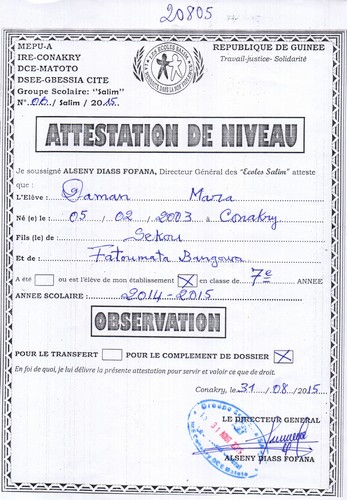 20805
MEPU-A
IRE-CONAKRY
DCE-MATOTO
DSEE-GBESSIA CITE
Groupe Scolaire: "Salim"
N° 06/Salim / 2015
REPUBLIQUE DE GUINEE
Travail-justice- Solidarité
ATTESTATION DE NIVEAU
Je soussigné ALSENY DIASS FOFANA, Directeur Général des "Ecoles Salim" atteste
que :
L'Elève : Daman Mara
Né (e) le : 05 / 02 / 2003 à Conakry
Fils (le) de : Sekou
Et de : Fatoumata Bangoura
A été ou est l'élève de mon établissement X en classe de 7e ANNEE
ANNEE SCOLAIRE 2014-2015
OBSERVATION
POUR LE TRANSFERT POUR LE COMPLEMENT DE DOSSIER X
En foi de quoi, je lui délivre la présente attestation pour servir et valoir ce que de droit.
Conakry, le 31 / 08 / 2015
LE DIRECTEUR GENERAL
ALSENY DIASS FOFANA